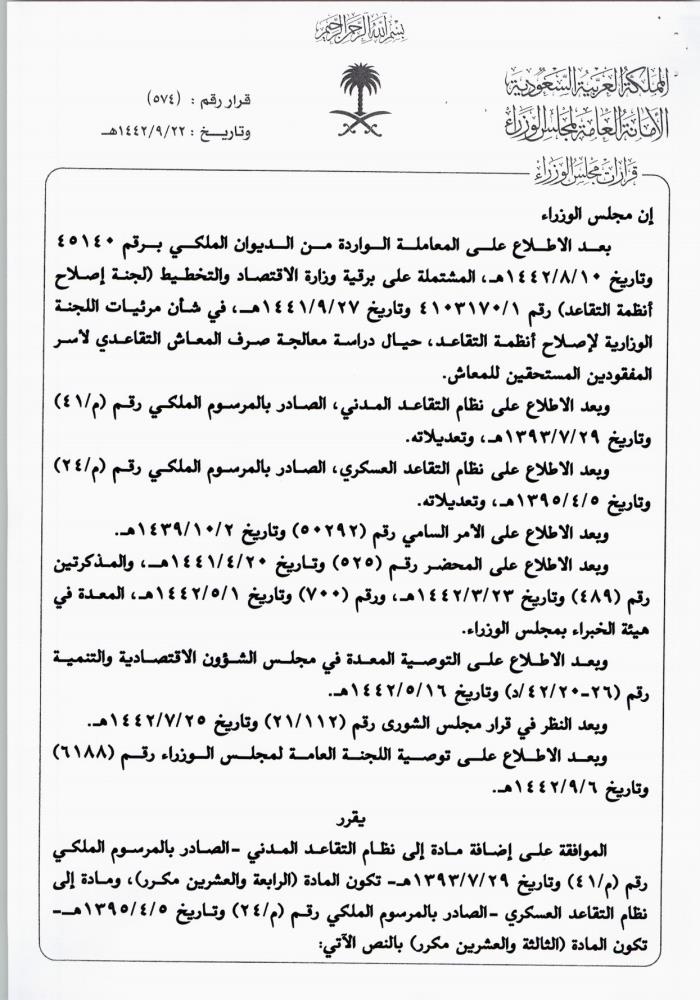 بسم الله الرحمن الرحيم
المملكة العربية السعودية
الأمانة العامة لمجلس الوزراء
قرار رقم : (٥٧٤)
وتاريخ : ١٤٤٢/٩/٢٢هـ
قرارات مجلس الوزراء
إن مجلس الوزراء
بعد الاطلاع على المعاملة الواردة من الديوان الملكي برقم ٤٥١٤٠
وتاريخ ١٤٤٢/٨/١٠هـ، المشتملة على برقية وزارة الاقتصاد والتخطيط (لجنة إصلاح
أنظمة التقاعد) رقم ٤١٠٣١٧٠/١ وتاريخ ١٤٤١/٩/٢٧هـ، في شأن مرئيات اللجنة
الوزارية لإصلاح أنظمة التقاعد، حيال دراسة معالجة صرف المعاش التقاعدي لأسر
المفقودين المستحقين للمعاش.
وبعد الاطلاع على نظام التقاعد المدني، الصادر بالمرسوم الملكي رقم (م/٤١)
وتاريخ ١٣٩٣/٧/٢٩هـ، وتعديلاته.
وبعد الاطلاع على نظام التقاعد العسكري، الصادر بالمرسوم الملكي رقم (م/٢٤)
وتاريخ ١٣٩٥/٤/٥هـ، وتعديلاته.
وبعد الاطلاع على الأمر السامي رقم (٥٠٢٩٢) وتاريخ ١٤٣٩/١٠/٢هـ.
وبعد الاطلاع على المحضر رقم (٥٢٥) وتاريخ ١٤٤١/٤/٢٠هـ، والمذكرتين
رقم (٤٨٩) وتاريخ ١٤٤٢/٣/٢٣هـ، ورقم (٧٠٠) وتاريخ ١٤٤٢/٥/١هـ، المعدة في
هيئة الخبراء بمجلس الوزراء.
وبعد الاطلاع على التوصية المعدة في مجلس الشؤون الاقتصادية والتنمية
رقم (٢٦-٤٢/٢٠/د) وتاريخ ١٤٤٢/٥/١٦هـ.
وبعد النظر في قرار مجلس الشورى رقم (٢١/١١٢) وتاريخ ١٤٤٢/٧/٢٥هـ.
وبعد الاطلاع على توصية اللجنة العامة لمجلس الوزراء رقم (٦١٨٨)
وتاريخ ١٤٤٢/٩/٦هـ.
يقرر
الموافقة على إضافة مادة إلى نظام التقاعد المدني -الصادر بالمرسوم الملكي
رقم (م/٤١) وتاريخ ١٣٩٣/٧/٢٩هـ- تكون المادة (الرابعة والعشرين مكرر)، ومادة إلى
نظام التقاعد العسكري -الصادر بالمرسوم الملكي رقم (م/٢٤) وتاريخ ١٣٩٥/٤/٥هـ-
تكون المادة (الثالثة والعشرين مكرر) بالنص الآتي: